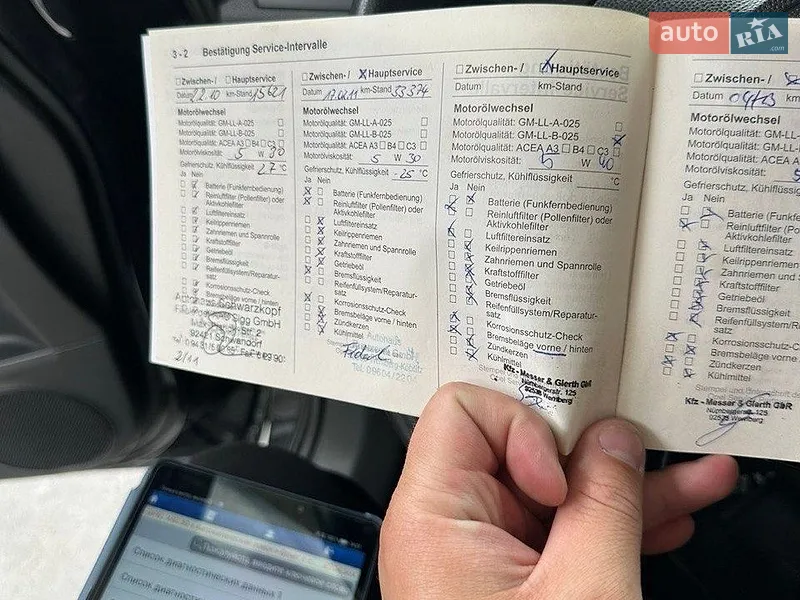 auto RIA .com
3 - 2 Bestätigung Service-Intervalle
Zwischen- / Hauptservice
Datum 22.10 km-Stand 15621
Motorölwechsel
Motorölqualität: GM-LL-A-025
Motorölqualität: GM-LL-B-025
Motorölqualität: ACEA A3 B4 C3
Motorölviskosität: 5 W 30
Gefrierschutz, Kühlflüssigkeit 27 °C
Ja Nein
Batterie (Funkfernbedienung)
Reinluftfilter (Pollenfilter) oder
Aktivkohlefilter
Luftfiltereinsatz
Keilrippenriemen
Zahnriemen und Spannrolle
Kraftstofffilter
Getriebeöl
Bremsflüssigkeit
Reifenfüllsystem/Reparatur-
satz
Korrosionsschutz-Check
Bremsbeläge vorne / hinten
Schwarzkopf
GmbH
92421 Schwandorf
2/11
Zwischen- / X Hauptservice
Datum km-Stand 33374
Motorölwechsel
Motorölqualität: GM-LL-A-025
Motorölqualität: GM-LL-B-025
Motorölqualität: ACEA A3 B4 C3
Motorölviskosität: 5 W 30
Gefrierschutz, Kühlflüssigkeit -25 °C
Ja Nein
Batterie (Funkfernbedienung)
Reinluftfilter (Pollenfilter) oder
Aktivkohlefilter
Luftfiltereinsatz
Keilrippenriemen
Zahnriemen und Spannrolle
Kraftstofffilter
Getriebeöl
Bremsflüssigkeit
Reifenfüllsystem/Reparatur-
satz
Korrosionsschutz-Check
Bremsbeläge vorne / hinten
Zündkerzen
Kühlmittel
Zwischen- / X Hauptservice
Datum km-Stand
Motorölwechsel
Motorölqualität: GM-LL-A-025
Motorölqualität: GM-LL-B-025
Motorölqualität: ACEA A3 B4 C3
Motorölviskosität: 5 W 40
Gefrierschutz, Kühlflüssigkeit °C
Ja Nein
Batterie (Funkfernbedienung)
Reinluftfilter (Pollenfilter) oder
Aktivkohlefilter
Luftfiltereinsatz
Keilrippenriemen
Zahnriemen und Spannrolle
Kraftstofffilter
Getriebeöl
Bremsflüssigkeit
Reifenfüllsystem/Reparatur-
satz
Korrosionsschutz-Check
Bremsbeläge vorne / hinten
Zündkerzen
Kühlmittel
Kfz - Messer & Gierth GbR
Nürnbergerstr. 125
92533 Wernberg
Zwischen- /
Datum 04/13 km-Stand
Motorölwechsel
Motorölqualität: GM-LL-
Motorölqualität: GM-LL-
Motorölqualität: ACEA A
Motorölviskosität:
Gefrierschutz, Kühlflüssig
Ja Nein
Batterie (Funkf
Reinluftfilter (P
Aktivkohlefilter
Luftfiltereinsatz
Keilrippenrieme
Zahnriemen und
Kraftstofffilter
Getriebeöl
Bremsflüssigkeit
Reifenfüllsystem/R
satz
Korrosionsschutz-C
Bremsbeläge vorne
Zündkerzen
Kühlmittel
Kfz - Messer & Gierth GbR
Nürnbergerstr. 125
92533 Wernberg
Список диагностических данных 1
Список диагност